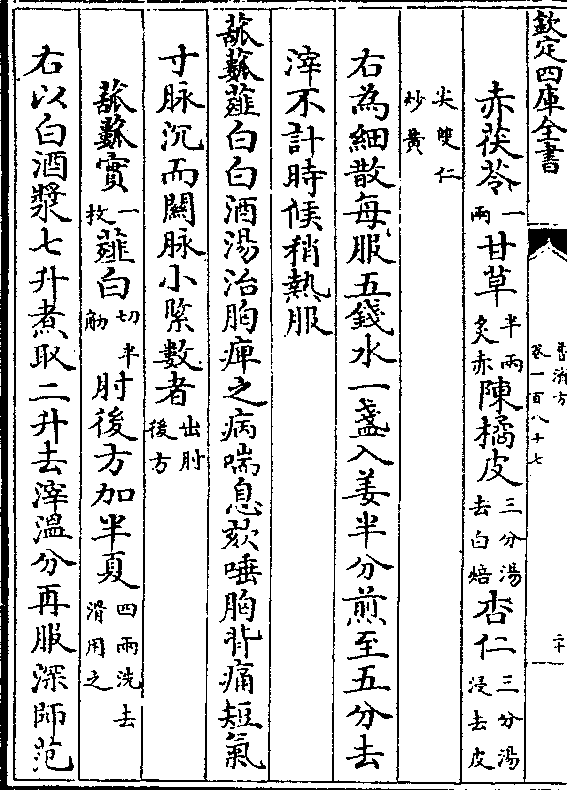 欽定四庫全書
普濟方
卷一百八十七
二十
赤茯苓一兩甘草半兩炙赤陳橘皮三分湯去白焙杏仁三分湯浸去皮
尖雙仁炒黄
右為細散每服五錢水一盞入姜半分煎至五分去
滓不計時候稍熱服
蓏蓏薤白白酒湯治胸痺之病喘息欬唾胸背痛短氣
寸脉沉而關脉小緊數者出肘後方
蓏蓏實一枚薤白切半觔肘後方加半夏四兩洗去滑用之
右以白酒漿七升煮取二升去滓温分再服深師范